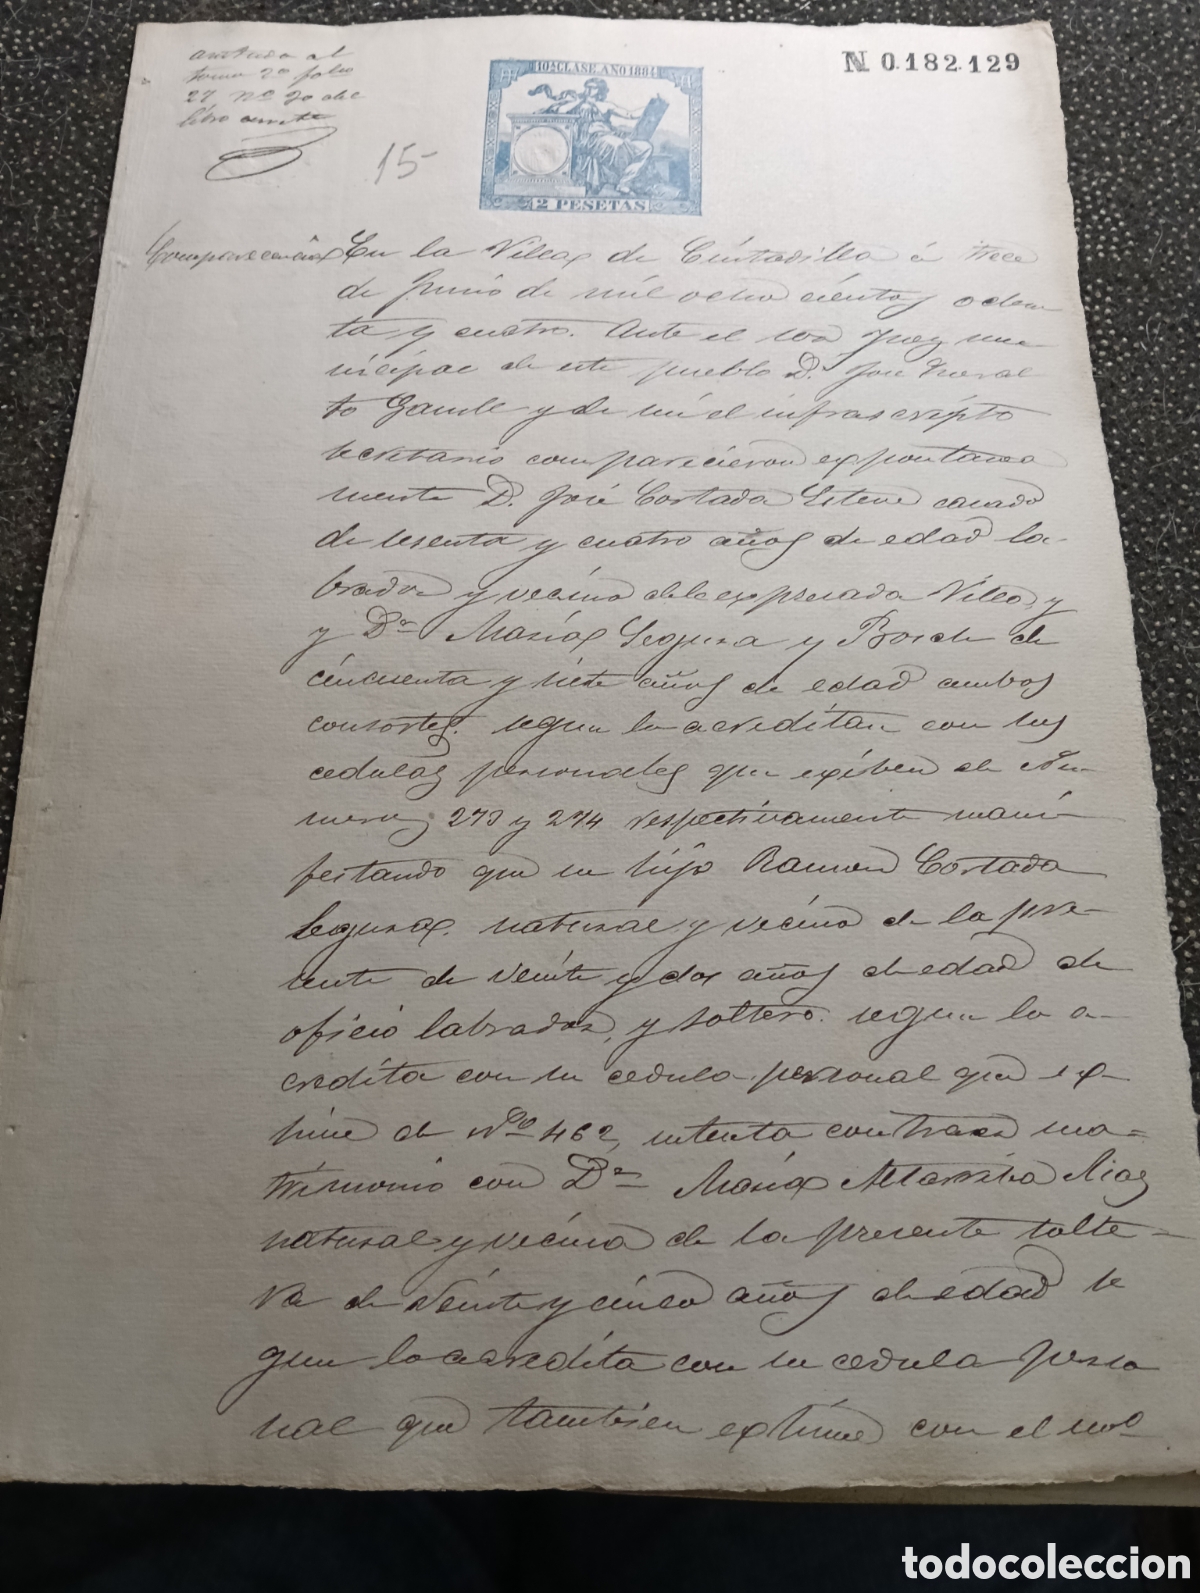 al
tomo 2º folio
27 Nº 70 del
libro
15
10ª CLASE. AÑO 1884
2 PESETAS
N 0.182.129
Comparecencia En la Villa de Ciutadilla á trece
de Junio de mil ocho cientos ochen
ta y cuatro. Ante el Sor Juez mu
nicipal de este pueblo D. José
to y de mi el infrascripto
Secretario comparecieron expontanea
mente D. José Cortada Esteve casado
de sesenta y cuatro años de edad la-
brador y vecino de la expresada Villa, y
y Dª María Segura y Bosch de
cincuenta y siete años de edad ambos
consortes. segun lo acreditan con sus
cedulas personales que exiben de Nu
meros 273 y 274 respectivamente mani
festando que su hijo Ramon Cortada
Segura. natural y vecino de la pre-
sente de veinte y dos años de edad de
oficio labrador, y soltero. segun lo a-
credita con su cedula personal que ex-
hive de Nº 462, intenta contraer ma-
trimonio con Dª María Altarriba
natural y vecina de la presente solte-
ra de veinte y cinco años de edad se
gun lo acredita con su cedula perso
nal que tambien exhive con el nº
todocoleccion